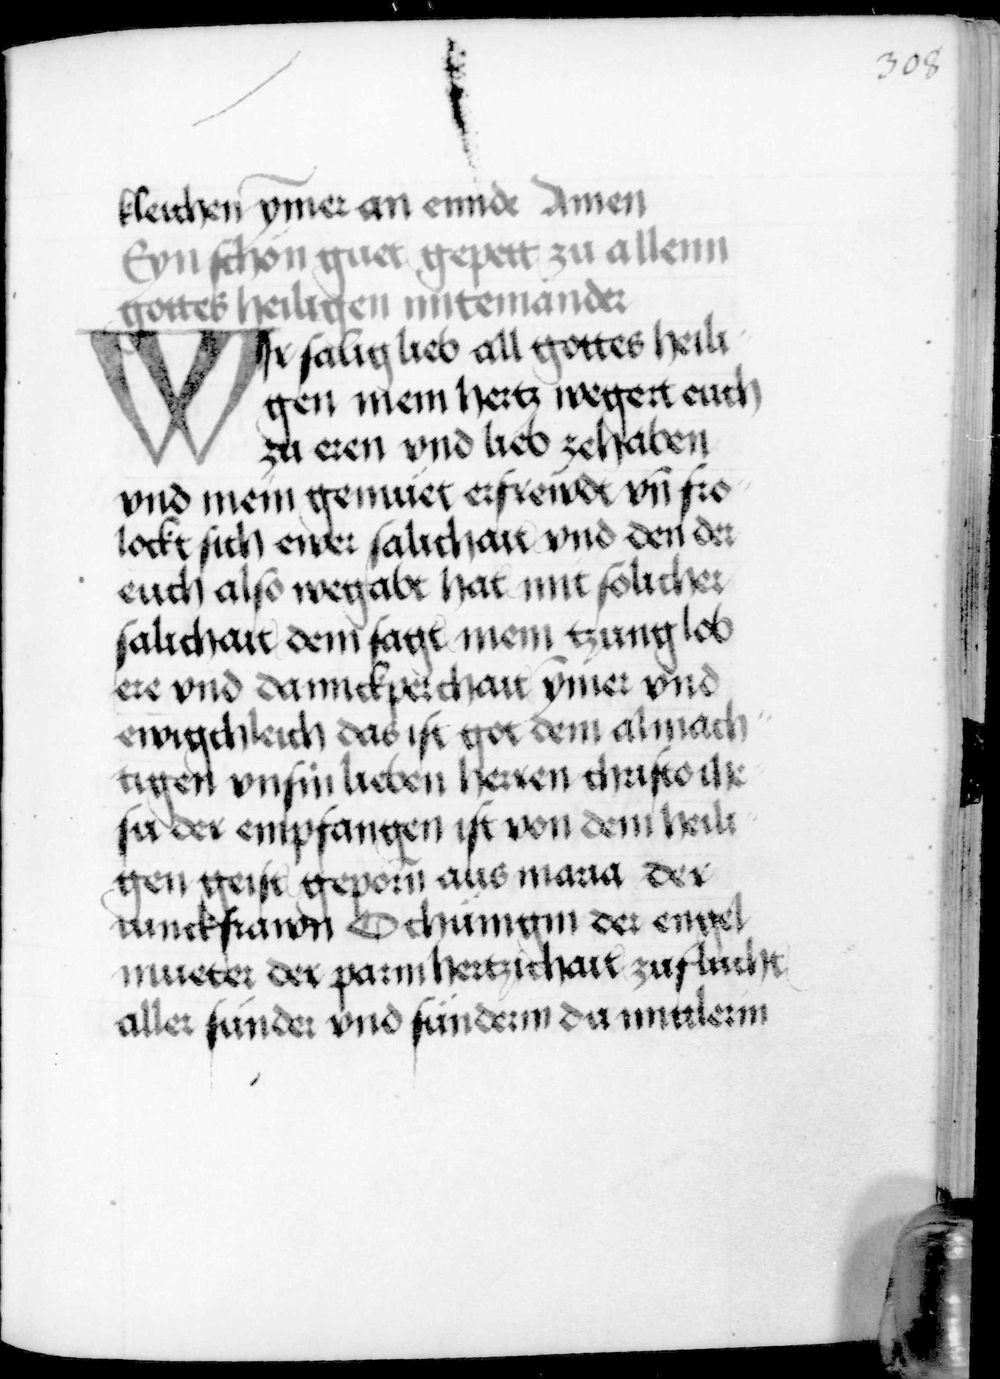 308
kleichen ym̄er an ennde Amen
Eyn schön guet gepett zu allenn
gottes heiligen miteinander
Wir salig lieb all gottes heili
gen mein hertz wegert euch
zu eren vnd lieb zehaben
vnd mein gemüet erfrewdt vn̄ fro
lockt sich ewer salichait vnd den der
euch also wegabt hat mit solicher
salichait dem sagt mein tzung lob
ere vnd dannckperchait ym̄er vnd
ewigchleich das ist got dem almach
tigen vnsm̄ lieben herren christo ihe
su der empfangen ist von dem heili
gen geist geporn̄ aus maria der
iunckfrawn O chünigin der engel
mueter der parmhertzichait zuflucht
aller sünder vnd sünderin du mitlerin